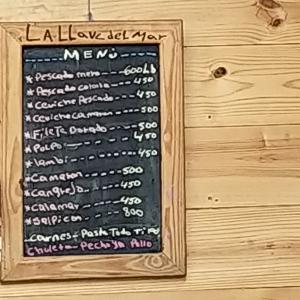 LA LLave del Mar
MENÚ
*Pescado mero---600Lb
*Pescado colora---450
*Ceviche Pescado---450
*Ceviche camaron---500
*FileTe Dorado---500
*Pulpo---450
*Lambi---450
*Camaron---500
*Cangrejo---450
*Calamar---450
*Salpicon---800
Carnes-Pasta Todo Tipo
Chuleta-Pechuga Pollo